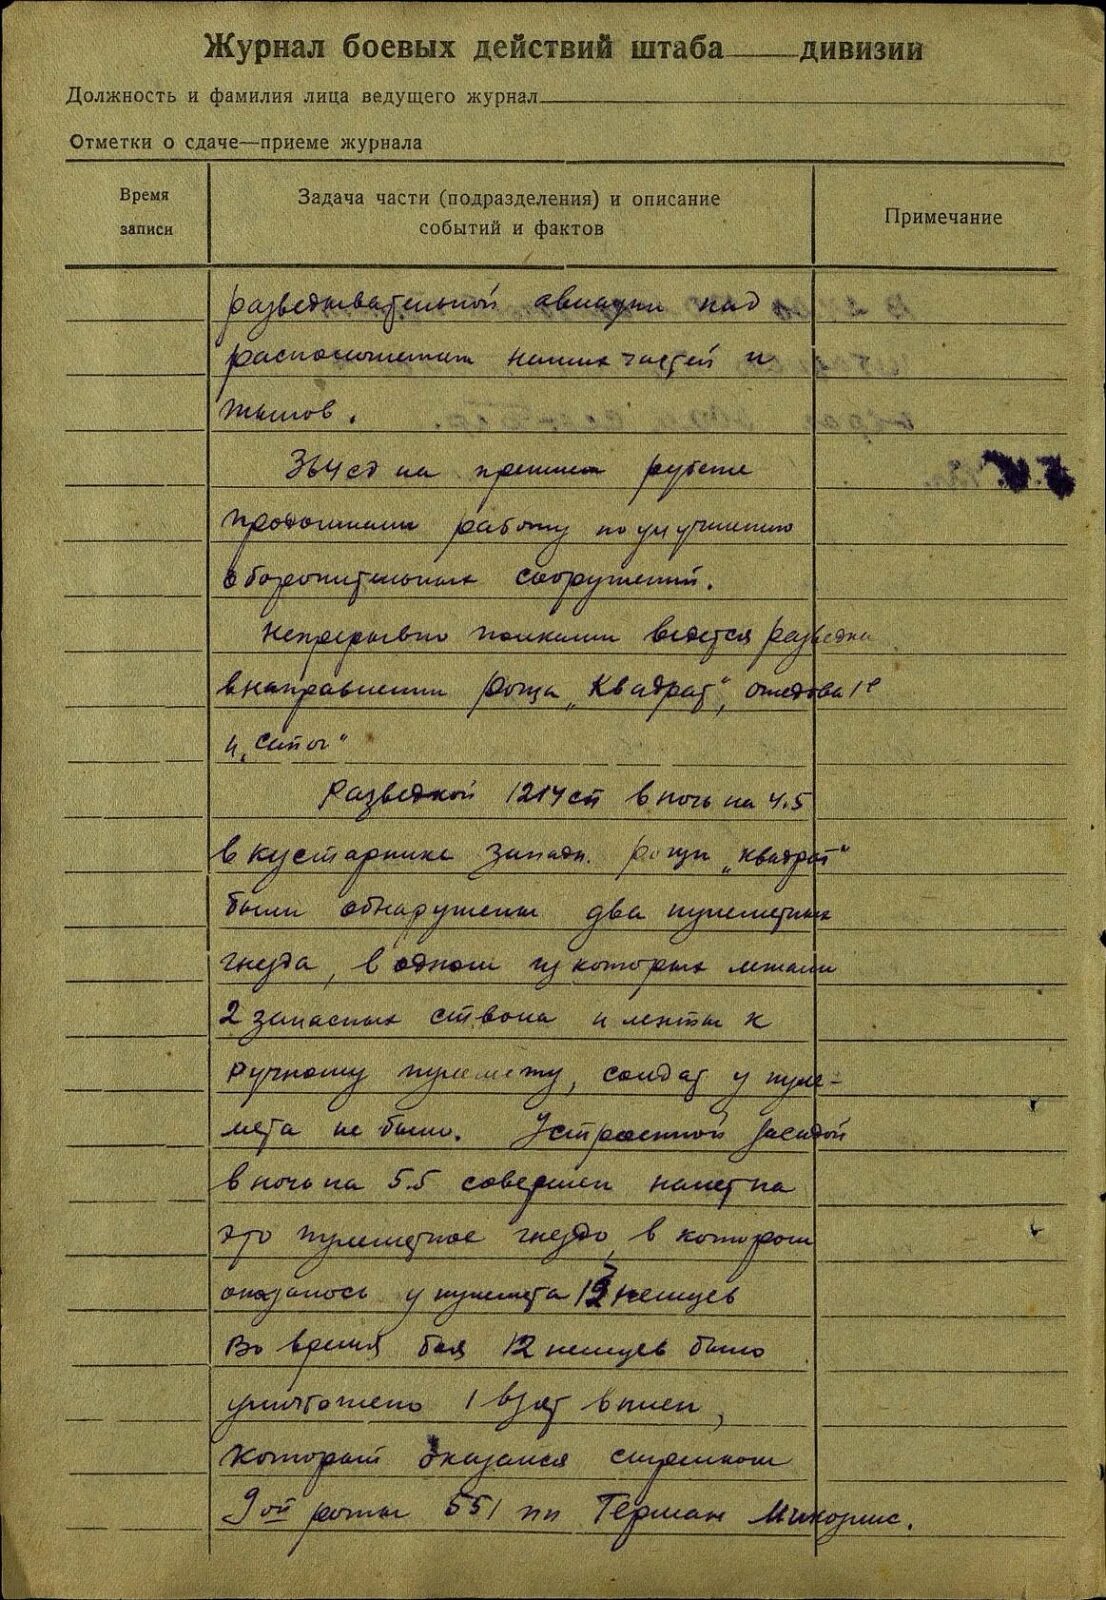 Журнал боевых действий штаба ____ дивизии
Должность и фамилия лица ведущего журнал
Отметки о сдаче—приеме журнала
Время записи
Задача части (подразделения) и описание событий и фактов
Примечание
разведывательной авиации над
расположением наших частей и
тылов.
364 сд на прежнем рубеже
продолжали работу по улучшению
оборонительных сооружений.
Непрерывно полками ведется разведка
в направлении роща „Квадрат",
и „
Разведкой 1214 сп в ночь на 4.5
в кустарнике западн. рощи „Квадрат"
были обнаружены два пулеметных
гнезда, в одном из которых лежали
2 запасных ствола и ленты к
ручному пулемету, солдат у пуле-
мета не было. Устроенной засадой
в ночь на 5.5 совершен налет на
это пулеметное гнездо, в котором
оказалось у пулемета 13 немцев
Во время боя 12 немцев было
уничтожено 1 взят в плен,
который оказался стрелком
9ой роты 551 пп Герман